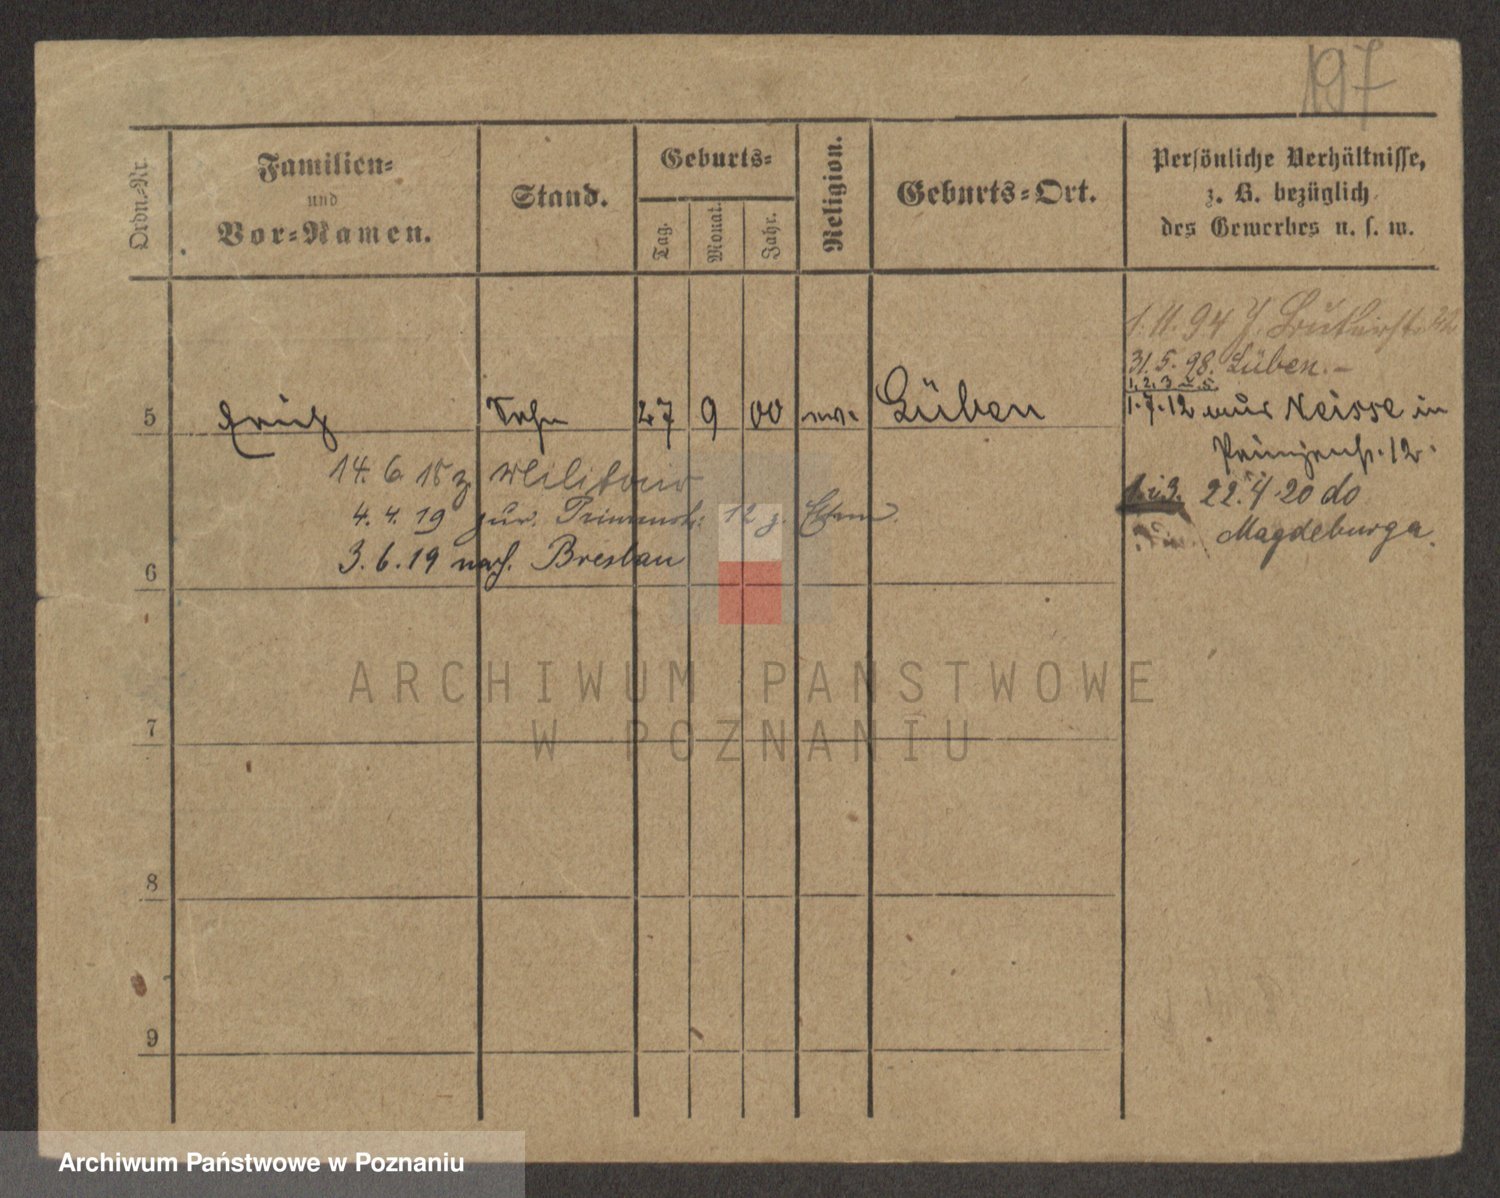 197
Ordn.-Nr.
Familien-
und
Vor-Namen.
Stand.
Geburts-
Tag.
Monat.
Jahr.
Religion.
Geburts-Ort.
Persönliche Verhältnisse,
z. B. bezüglich
des Gewerbes u. s. w.
1. 11. 94 J.
31. 5. 98. Lüben. -
1, 2, 3 u. 5.
5 Erich Sohn 27 9 00 ev. Lüben
1. 7. 12 aus Neisse in
12.
14. 6. 18 z. Militär
1. u. 3. 22. 4. 20 do
4. 4. 19 zur. 12 z. Eltern.
Magdeburg a.
3. 6. 19 nach. Breslau
6
7
8
9
ARCHIWUM PAŃSTWOWE
W POZNANIU
Archiwum Państwowe w Poznaniu